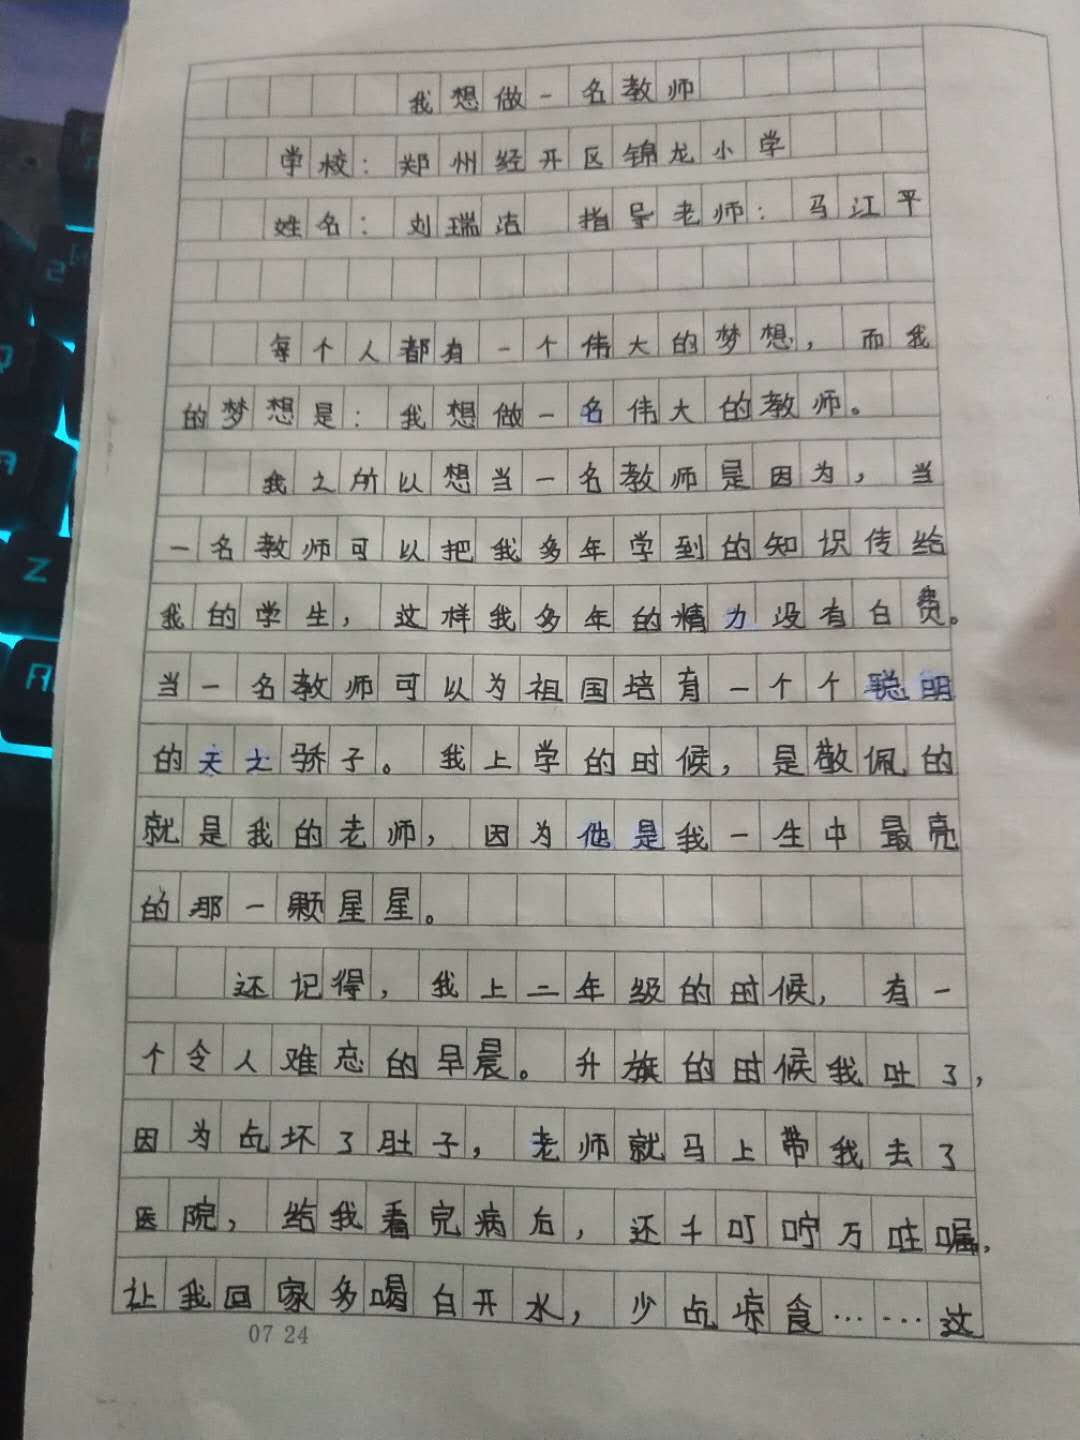 我想做一名教师
学校：郑州经开区锦龙小学
姓名：刘瑞洁 指导老师：马江平
每个人都有一个伟大的梦想，而我
的梦想是：我想做一名伟大的教师。
我之所以想当一名教师是因为，当
一名教师可以把我多年学到的知识传给
我的学生，这样我多年的精力没有白费。
当一名教师可以为祖国培育一个个聪明
的天之骄子。我上学的时候，是敬佩的
就是我的老师，因为他是我一生中最亮
的那一颗星星。
还记得，我上二年级的时候，有一
个令人难忘的早晨。升旗的时候我吐了，
因为吃坏了肚子，老师就马上带我去了
医院，给我看完病后，还千叮咛万吐嘱，
让我回家多喝白开水，少吃凉食……这
07 24